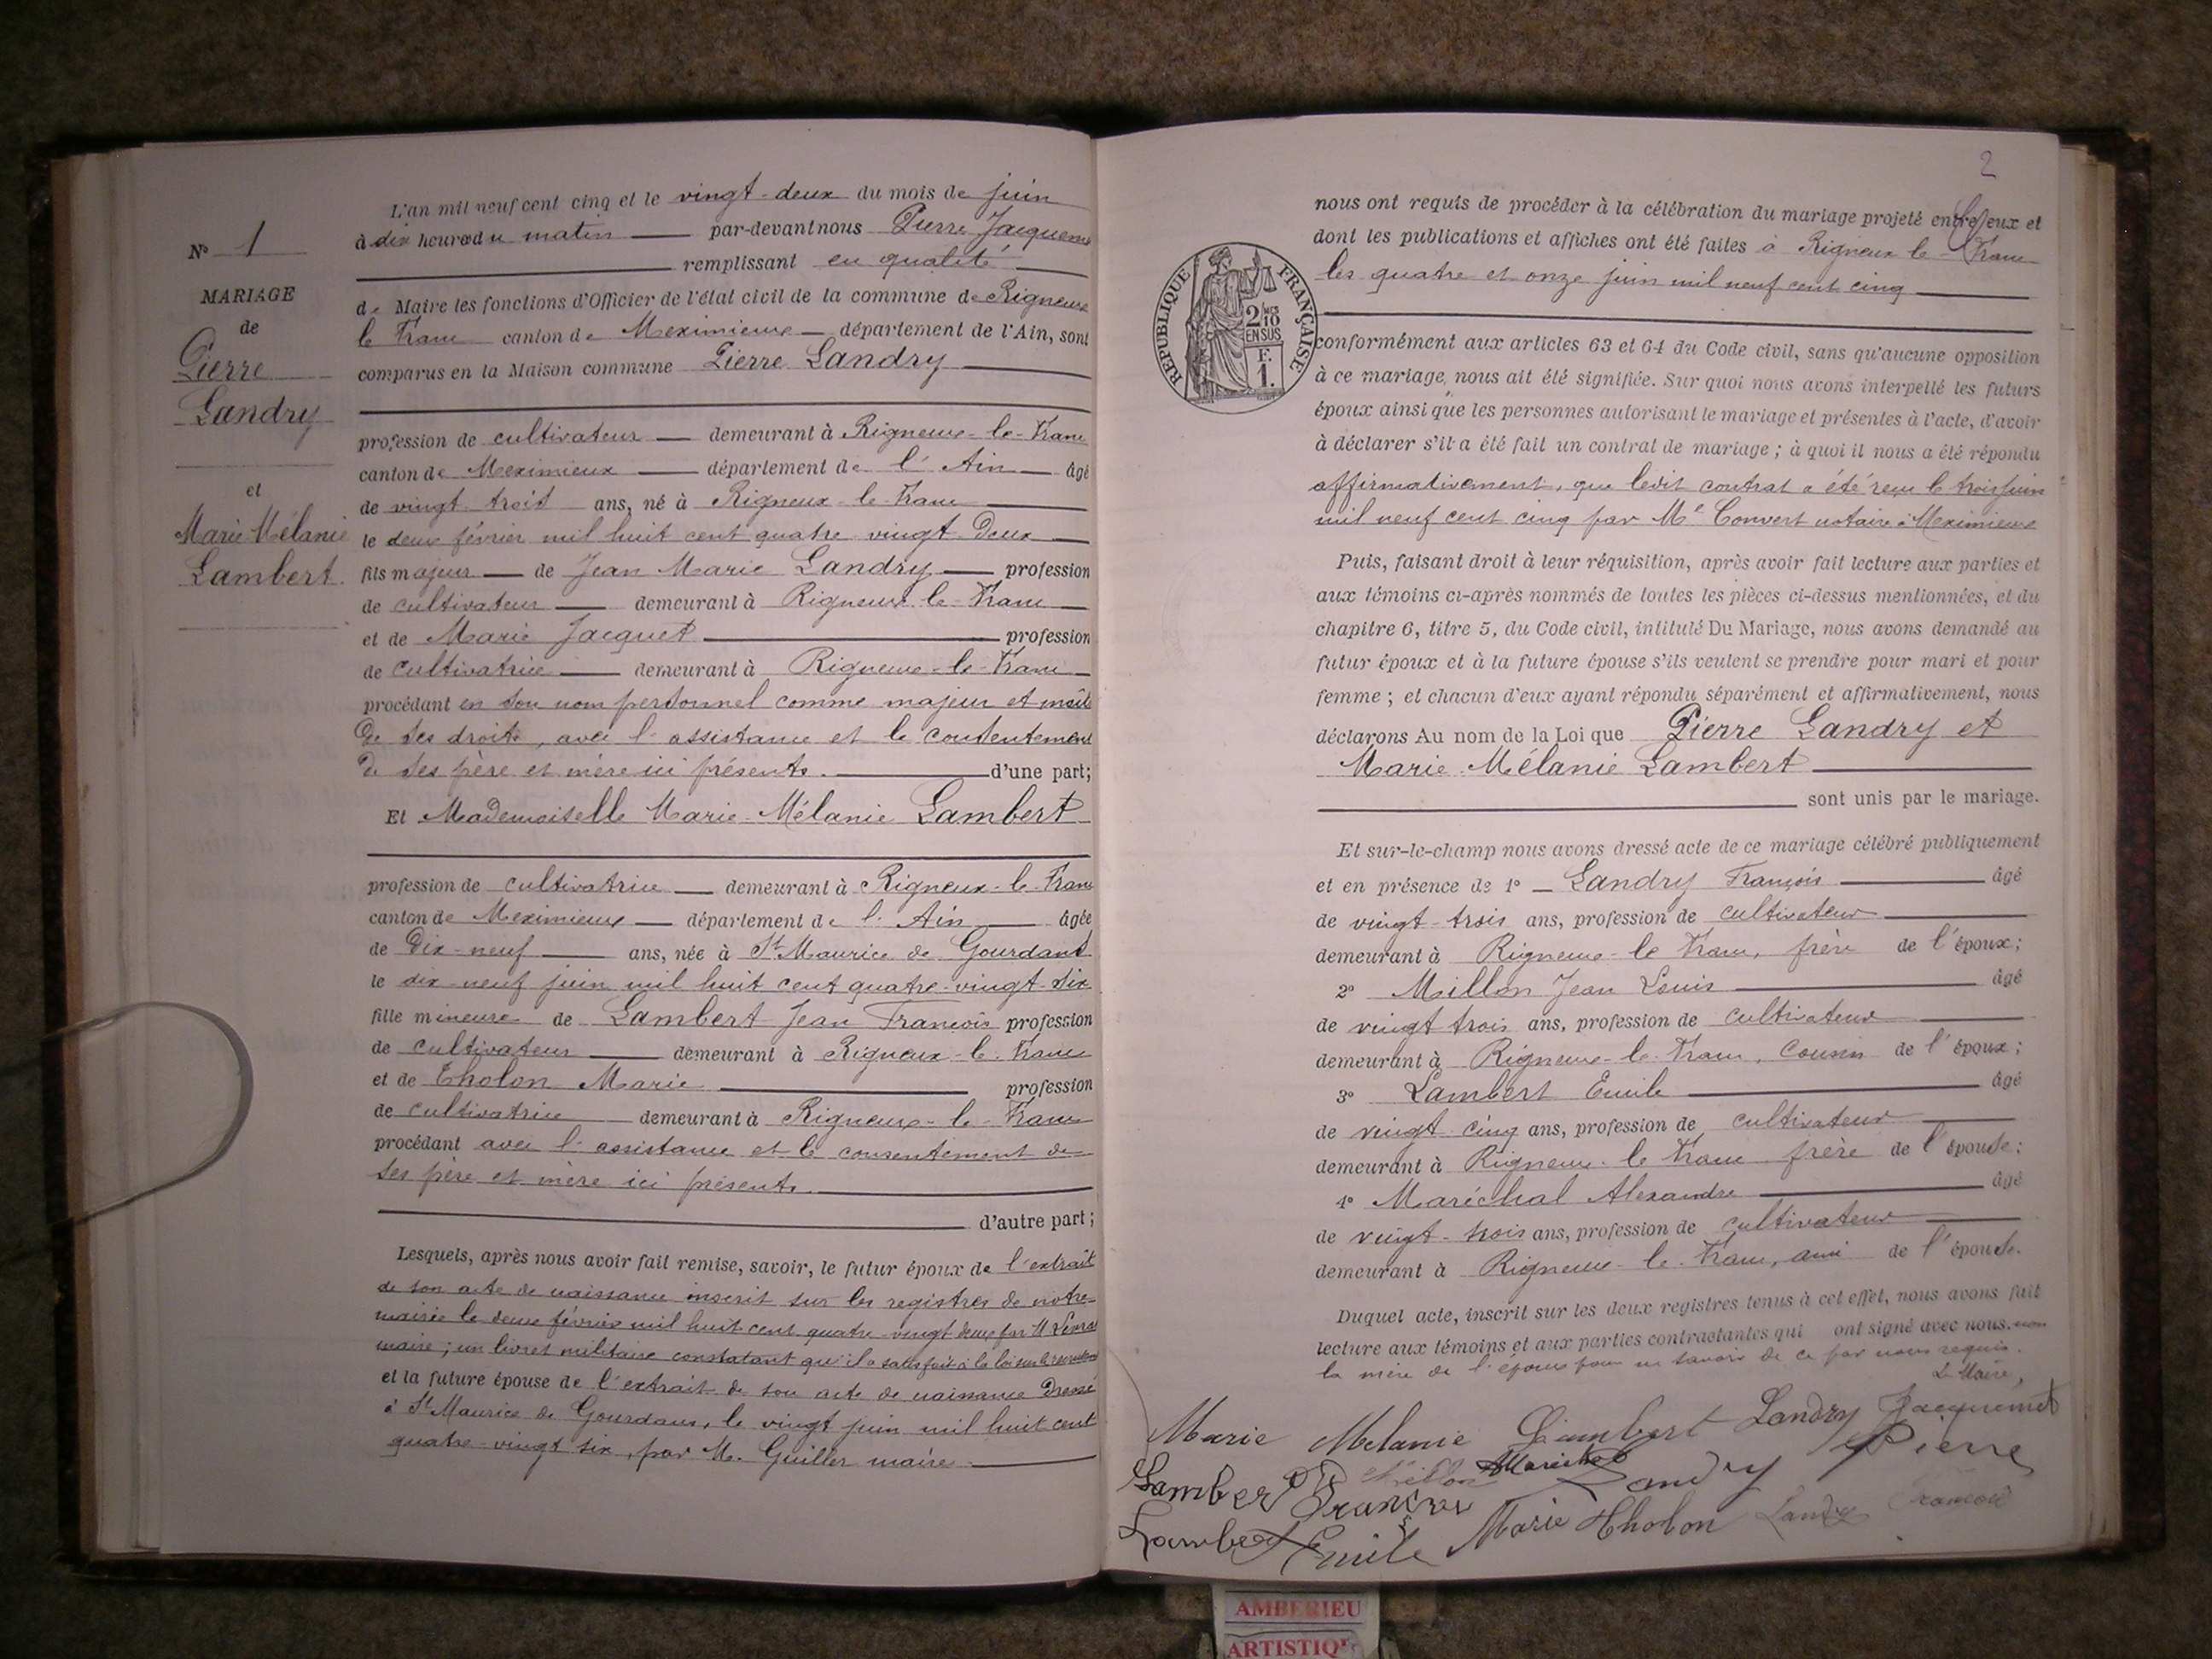 N° 1
MARIAGE
de
Pierre
Landry
et
Marie Mélanie
Lambert.
L'an mil neuf cent cinq et le vingt-deux du mois de juin
à dix heures du matin par-devant nous Pierre Jacquemet
remplissant en qualité
de Maire les fonctions d'Officier de l'état civil de la commune de Rigneux
le Franc canton de Meximieux département de l'Ain, sont
comparus en la Maison commune Pierre Landry
profession de cultivateur demeurant à Rigneux-le-Franc
canton de Meximieux département de l'Ain âgé
de vingt trois ans, né à Rigneux-le-Franc
le deux février mil huit cent quatre-vingt-deux
fils majeur de Jean Marie Landry profession
de cultivateur demeurant à Rigneux-le-Franc
et de Marie Jacquet profession
de cultivatrice demeurant à Rigneux-le-Franc
procédant en son nom personnel comme majeur et maître
de ses droits, avec l'assistance et le consentement
de ses père et mère ici présents. d'une part;
Et Mademoiselle Marie-Mélanie Lambert
profession de cultivatrice demeurant à Rigneux-le-Franc
canton de Meximieux département de l'Ain âgée
de dix-neuf ans, née à St Maurice de Gourdans
le dix-neuf juin mil huit cent quatre-vingt-six
fille mineure de Lambert Jean François profession
de cultivateur demeurant à Rigneux-le-Franc
et de Tholon Marie profession
de cultivatrice demeurant à Rigneux-le-Franc
procédant avec l'assistance et le consentement de
ses père et mère ici présents.
d'autre part;
Lesquels, après nous avoir fait remise, savoir, le futur époux de l'extrait
de son acte de naissance inscrit sur les registres de notre
mairie le deux février mil huit cent quatre-vingt deux par M.
maire; un livret militaire constatant qu'il a satisfait à la loi sur le recrutement
et la future épouse de l'extrait de son acte de naissance dressé
à St Maurice de Gourdans, le vingt juin mil huit cent
quatre-vingt six, par M. Guiller maire.
2
nous ont requis de procéder à la célébration du mariage projeté entre eux et
dont les publications et affiches ont été faites à Rigneux-le-Franc
les quatre et onze juin mil neuf cent cinq
RÉPUBLIQUE FRANÇAISE
2/10
EN SUS
F.
1.
conformément aux articles 63 et 64 du Code civil, sans qu'aucune opposition
à ce mariage, nous ait été signifiée. Sur quoi nous avons interpellé les futurs
époux ainsi que les personnes autorisant le mariage et présentes à l'acte, d'avoir
à déclarer s'il a été fait un contrat de mariage; à quoi il nous a été répondu
affirmativement, que ledit contrat a été reçu le trois juin
mil neuf cent cinq par Me Convert notaire à Meximieux
Puis, faisant droit à leur réquisition, après avoir fait lecture aux parties et
aux témoins ci-après nommés de toutes les pièces ci-dessus mentionnées, et du
chapitre 6, titre 5, du Code civil, intitulé Du Mariage, nous avons demandé au
futur époux et à la future épouse s'ils veulent se prendre pour mari et pour
femme; et chacun d'eux ayant répondu séparément et affirmativement, nous
déclarons Au nom de la Loi que Pierre Landry et
Marie-Mélanie Lambert
sont unis par le mariage.
Et sur-le-champ nous avons dressé acte de ce mariage célébré publiquement
et en présence de 1° Landry François âgé
de vingt-trois ans, profession de cultivateur
demeurant à Rigneux-le Franc, frère de l'époux;
2° Millon Jean Louis âgé
de vingt trois ans, profession de cultivateur
demeurant à Rigneux-le-Franc, cousin de l'époux;
3° Lambert Emile âgé
de vingt cinq ans, profession de cultivateur
demeurant à Rigneux-le Franc frère de l'épouse;
4° Maréchal Alexandre âgé
de vingt-trois ans, profession de cultivateur
demeurant à Rigneux-le-Franc, ami de l'épouse.
Duquel acte, inscrit sur les deux registres tenus à cet effet, nous avons fait
lecture aux témoins et aux parties contractantes qui ont signé avec nous. non
la mère de l'époux pour ne savoir de ce par nous requis.
Le Maire,
Marie Melanie Lambert Landry Jacquemet
Lambert François Millon Marechal Landry Pierre
Lambert Emile Marie Tholon Landry François
AMBERIEU
ARTISTIQ